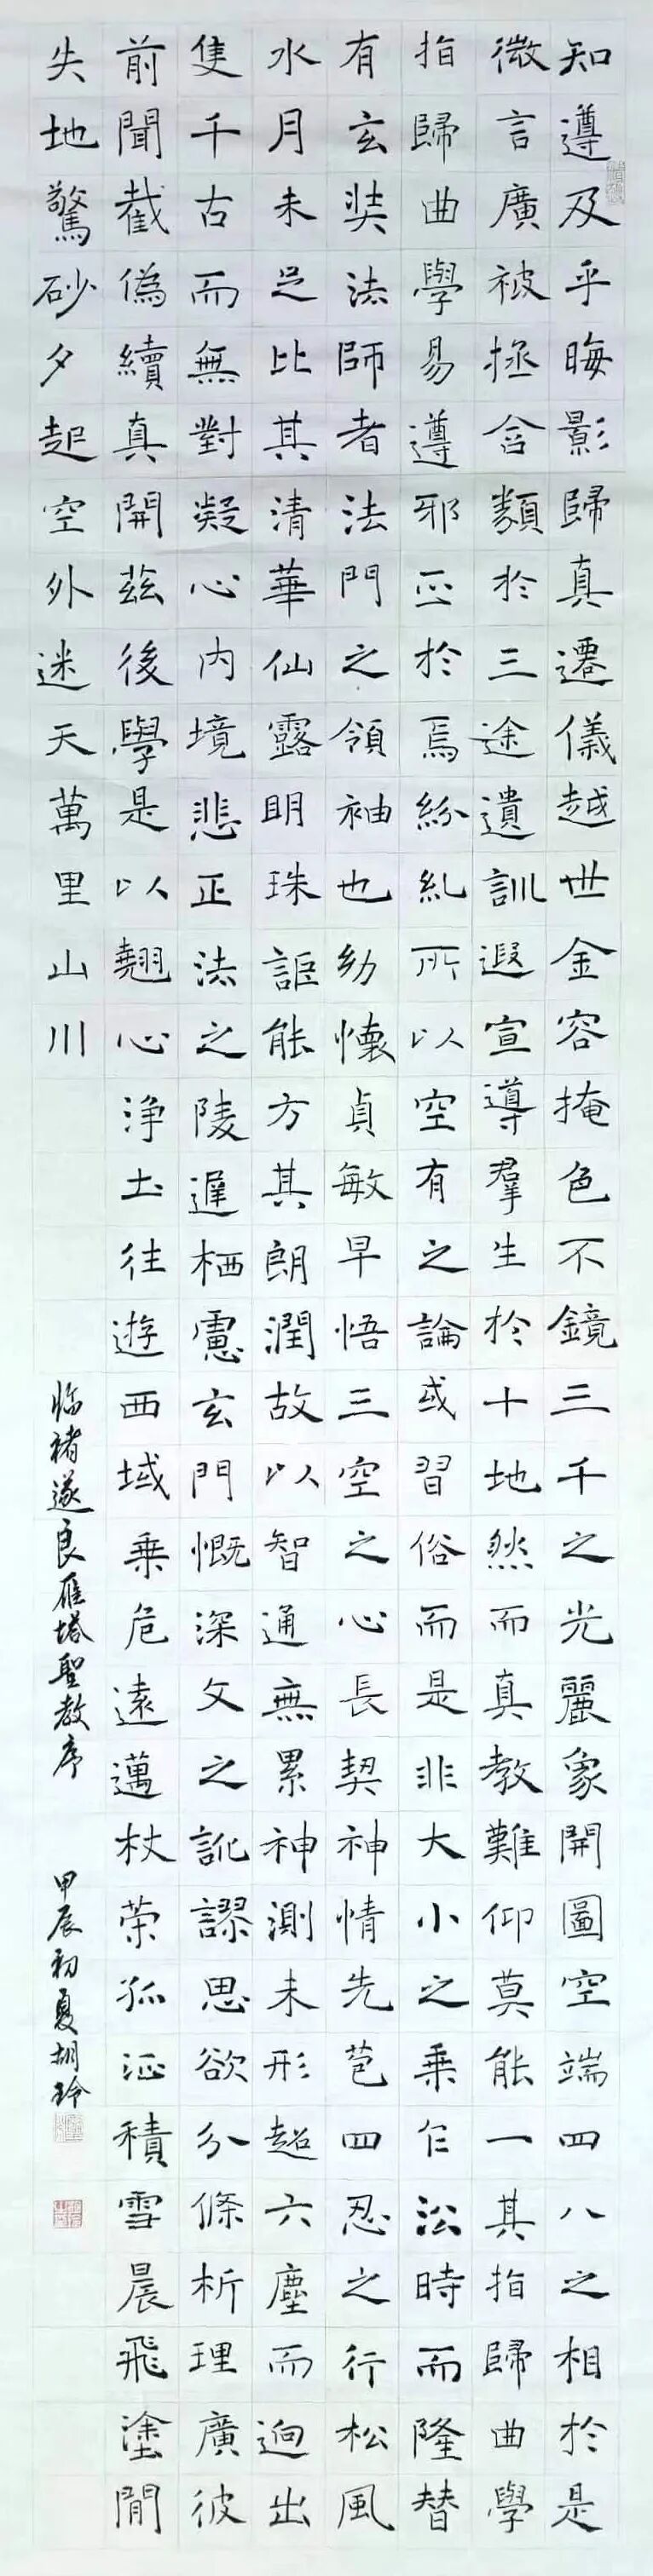 知遵及乎晦影歸真遷儀越世金容掩色不鏡三千之光麗象開圖空端四八之相於是
微言廣被拯含類於三途遺訓遐宣導羣生於十地然而真教難仰莫能一其指歸曲學
指歸曲學易遵邪正於焉紛糺所以空有之論或習俗而是非大小之乘乍沿時而隆替
有玄奘法師者法門之領袖也幼懷貞敏早悟三空之心長契神情先苞四忍之行松風
水月未足比其清華仙露明珠詎能方其朗潤故以智通無累神測未形超六塵而迥出
隻千古而無對凝心內境悲正法之陵遲栖慮玄門慨深文之訛謬思欲分條析理廣彼
前聞截偽續真開茲後學是以翹心淨土往遊西域乘危遠邁杖策孤征積雪晨飛塗閒
失地驚砂夕起空外迷天萬里山川
临褚遂良雁塔聖教序
甲辰初夏胡玲